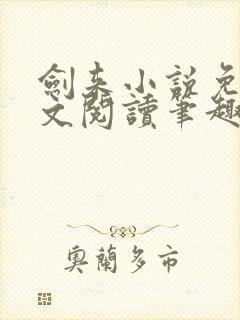 劍来小說免
文閱讀筆趣
奧蘭多市